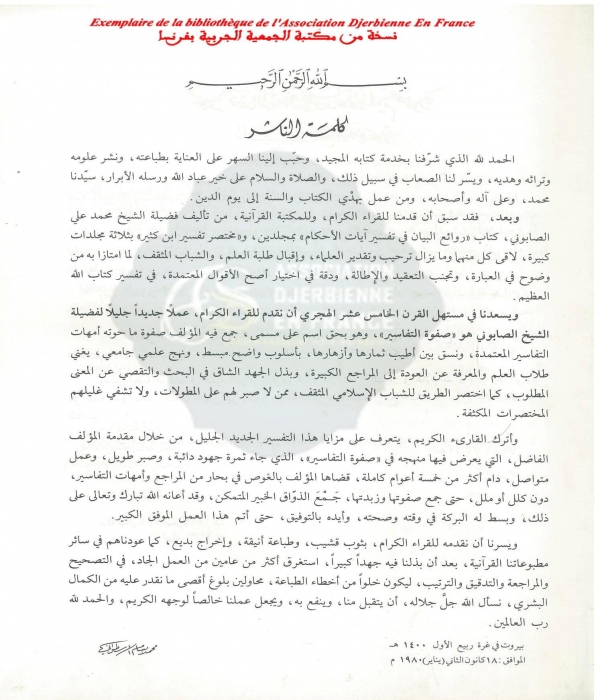 Exemplaire de la bibliothèque de l'Association Djerbienne En France
نسخة من مكتبة الجمعية الجربية بفرنسا
بسم الله الرحمن الرحيم
كلمة الناشر
الحمد لله الذي شرّفنا بخدمة كتابه المجيد، وحبّب إلينا السهر على العناية بطباعته، ونشر علومه
وتراثه وهديه، ويسّر لنا الصعاب في سبيل ذلك، والصلاة والسلام على خير عباد الله ورسله الأبرار، سيّدنا
محمد، وعلى آله وأصحابه، ومن عمل بهدْي الكتاب والسنة إلى يوم الدين.
وبعد، فقد سبق أن قدمنا للقراء الكرام، وللمكتبة القرآنية، من تأليف فضيلة الشيخ محمد علي
الصابوني، كتاب «روائع البيان في تفسير آيات الأحكام» بمجلدين، و«مختصر تفسير ابن كثير» بثلاثة مجلدات
كبيرة، لاقى كل منهما وما يزال ترحيب وتقدير العلماء، وإقبال طلبة العلم، والشباب المثقف، لما امتازا به من
وضوح في العبارة، وتجنب التعقيد والإطالة، ودقة في اختيار أصح الأقوال المعتمدة، في تفسير كتاب الله
العظيم.
ويسعدنا في مستهل القرن الخامس عشر الهجري أن نقدم للقراء الكرام، عملاً جديداً جليلاً لفضيلة
الشيخ الصابوني هو «صفوة التفاسير»، وهو بحق اسم على مسمى، جمع فيه المؤلف صفوة ما حوته أمهات
التفاسير المعتمدة، ونسق بين أطيب ثمارها وأزهارها، بأسلوب واضح مبسط، ونهج علمي جامعي، يغني
طلاب العلم والمعرفة عن العودة إلى المراجع الكبيرة، وبذل الجهد الشاق في البحث والتقصي عن المعنى
المطلوب، كما اختصر الطريق للشباب الإسلامي المثقف، ممن لا صبر لهم على المطولات، ولا تشفي غليلهم
المختصرات المكثفة.
وأترك القارىء الكريم، يتعرف على مزايا هذا التفسير الجديد الجليل، من خلال مقدمة المؤلف
الفاضل، التي يعرض فيها منهجه في «صفوة التفاسير»، الذي جاء ثمرة جهود دائبة، وصبر طويل، وعمل
متواصل، دام أكثر من خمسة أعوام كاملة، قضاها المؤلف بالغوص في بحار من المراجع وأمهات التفاسير،
دون كلل أو ملل، حتى جمع صفوتها وزبدتها، جَمْعَ الذوّاق الخبير المتمكن، وقد أعانه الله تبارك وتعالى على
ذلك، وبسط له البركة في وقته وصحته، وأيده بالتوفيق، حتى أتم هذا العمل الموفق الكبير.
ويسرنا أن نقدمه للقراء الكرام، بثوب قشيب، وطباعة أنيقة، وإخراج بديع، كما عودناهم في سائر
مطبوعاتنا القرآنية، بعد أن بذلنا فيه جهداً كبيراً، استغرق أكثر من عامين من العمل الجاد، في التصحيح
والمراجعة والتدقيق والترتيب، ليكون خلواً من أخطاء الطباعة، محاولين بلوغ أقصى ما نقدر عليه من الكمال
البشري، نسأل الله جلَّ جلاله، أن يتقبل منا، وينفع به، ويجعل عملنا خالصاً لوجهه الكريم، والحمد لله
رب العالمين.
بيروت في غرة ربيع الأول ١٤٠٠ هـ
الموافق: ١٨ كانون الثاني (يناير) ١٩٨٠ م
DJERBIENNE
EN FRANCE